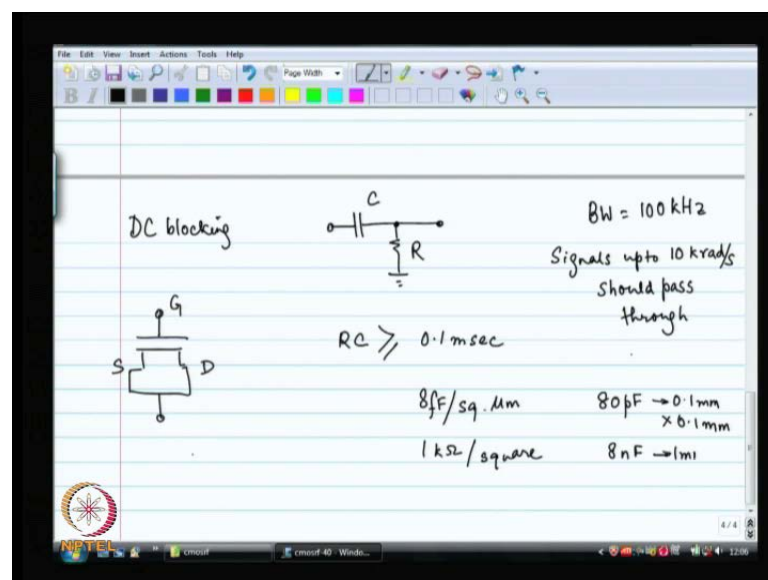 File Edit View Insert Actions Tools Help
Page Width
B I
DC blocking
C
R
BW = 100 kHz
Signals upto 10 krad/s
should pass
through
G
S D
RC ⩾ 0.1 msec
8fF/sq. μm
80pF → 0.1mm
× 0.1mm
1 kΩ/square
8nF → 1m
4/4
NPTEL
cmosrf
cmosrf-40 - Windo...
12:06